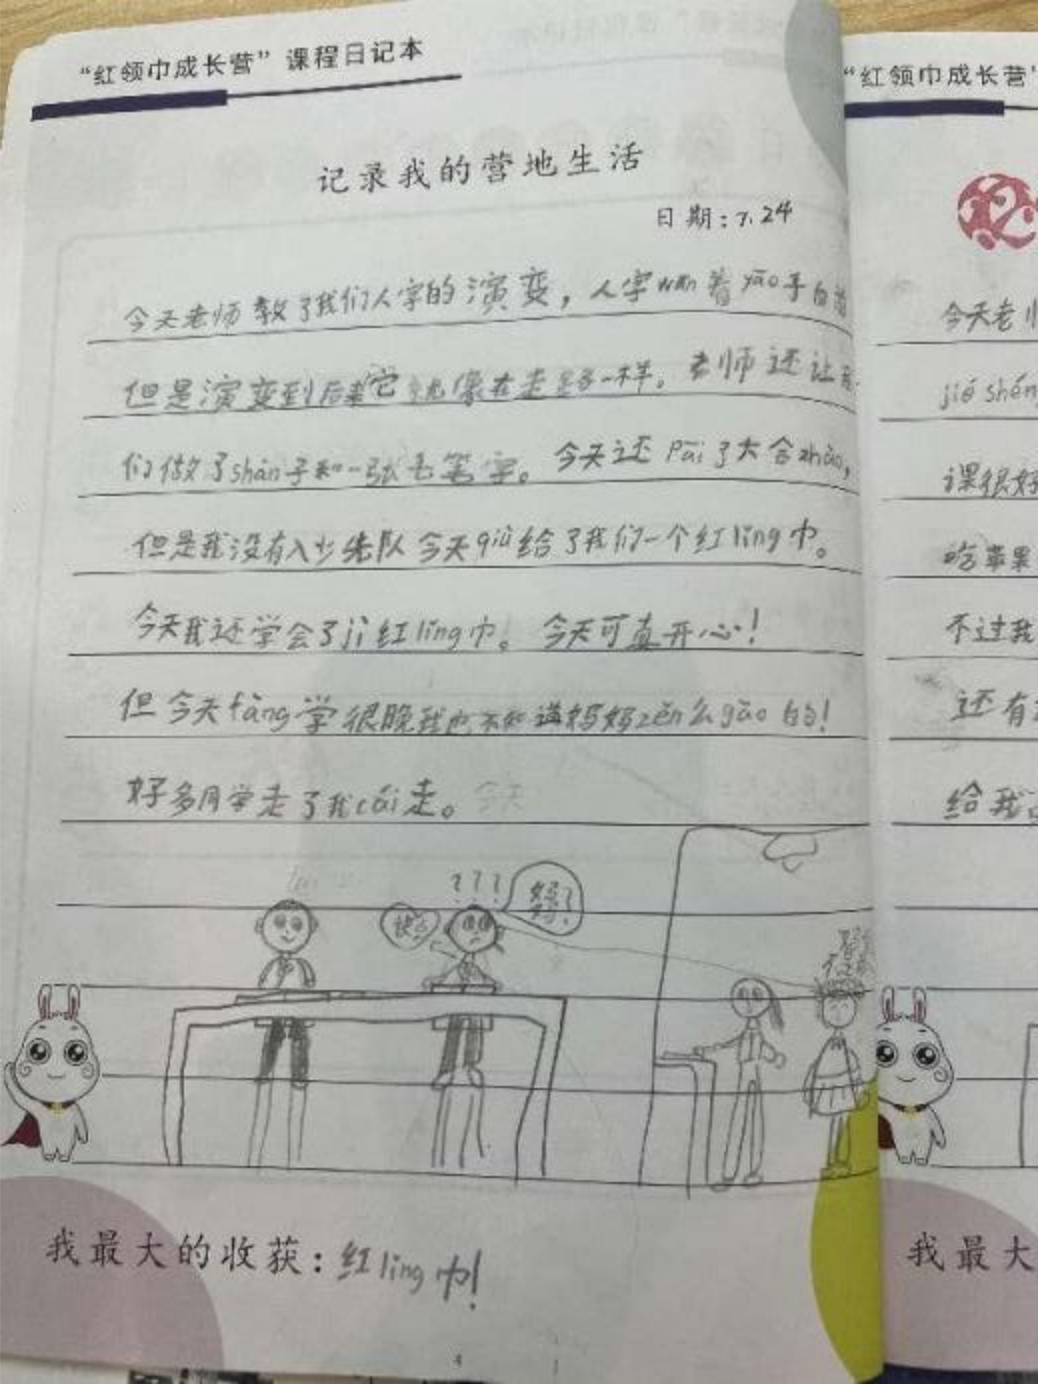 “红领巾成长营”课程日记本
记录我的营地生活
日期:7.24
今天老师教了我们人字的演变，人字wān着yāo手自
但是演变到后来它就像在走路一样。老师还让我
们做了shàn子和一张毛笔字。今天还Pāi了大合zhào，
但是我没有入少先队今天qiú给了我们一个红lǐng巾。
今天我还学会了jì红lǐng巾。今天可真开心！
但今天fàng学很晚我也不知道妈妈zěn么gǎo的！
好多同学走了我cái走。今天
？？？
妈妈？
快点
我最大的收获：红lǐng巾！
4
“红领巾成长营”
今天老师
jié shén
课很好
吃苹果
不过我
还有
给我
我最大